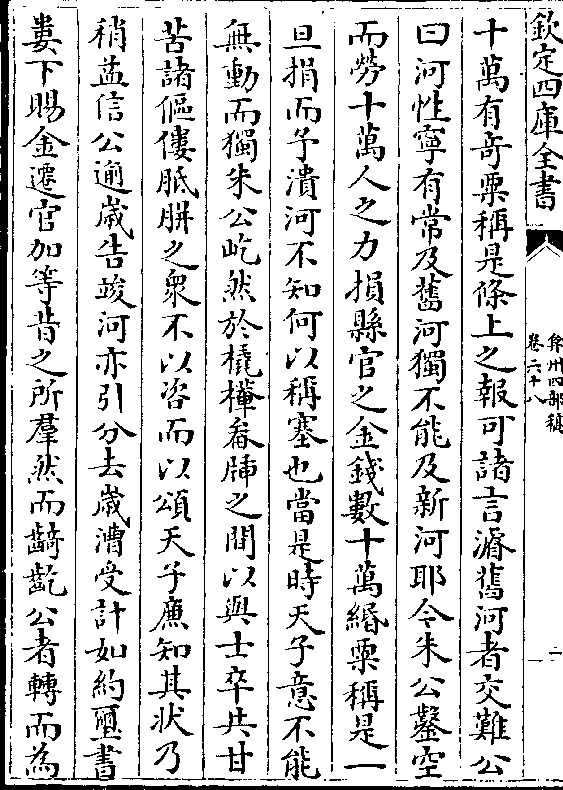 欽定四庫全書
弇州四部稿
卷六十八
二
十萬有竒粟稱是條上之報可諸言濬舊河者交難公
曰河性寧有常及舊河獨不能及新河耶令朱公鑿空
而勞十萬人之力損縣官之金錢數十萬緡粟稱是一
旦捐而予潰河不知何以稱塞也當是時天子意不能
無動而獨朱公屹然於橇樺畚臿之間以與士卒共甘
苦諸傴僂胝胼之衆不以咨而以頌天子廉知其狀乃
稍益信公逾歲告竣河亦引分去歲漕受計如約璽書
婁下賜金遷官加等昔之所羣然而齮齕公者轉而為